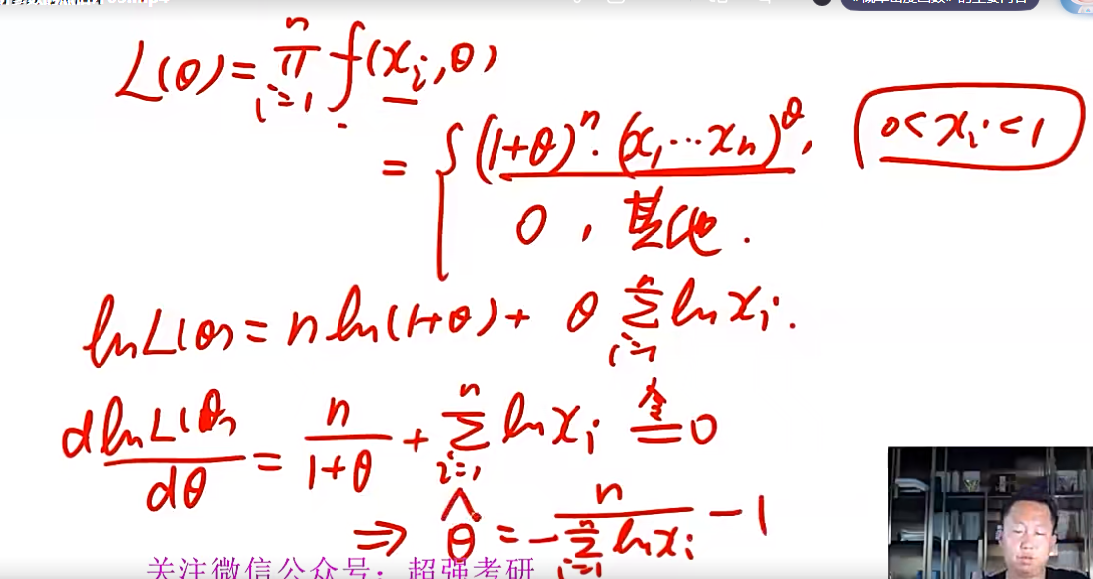 L(θ) = ∏_{i=1}^{n} f(x_i, θ)
= { (1+θ)^n · (x_1 ⋯ x_n)^θ, 0 < x_i < 1
0, 其他.
ln L(θ) = n ln(1+θ) + θ ∑_{i=1}^{n} ln x_i.
d ln L(θ) / dθ = n / (1+θ) + ∑_{i=1}^{n} ln x_i 令= 0
⇒ θ̂ = − n / ∑_{i=1}^{n} ln x_i − 1
关注微信公众号：超强考研